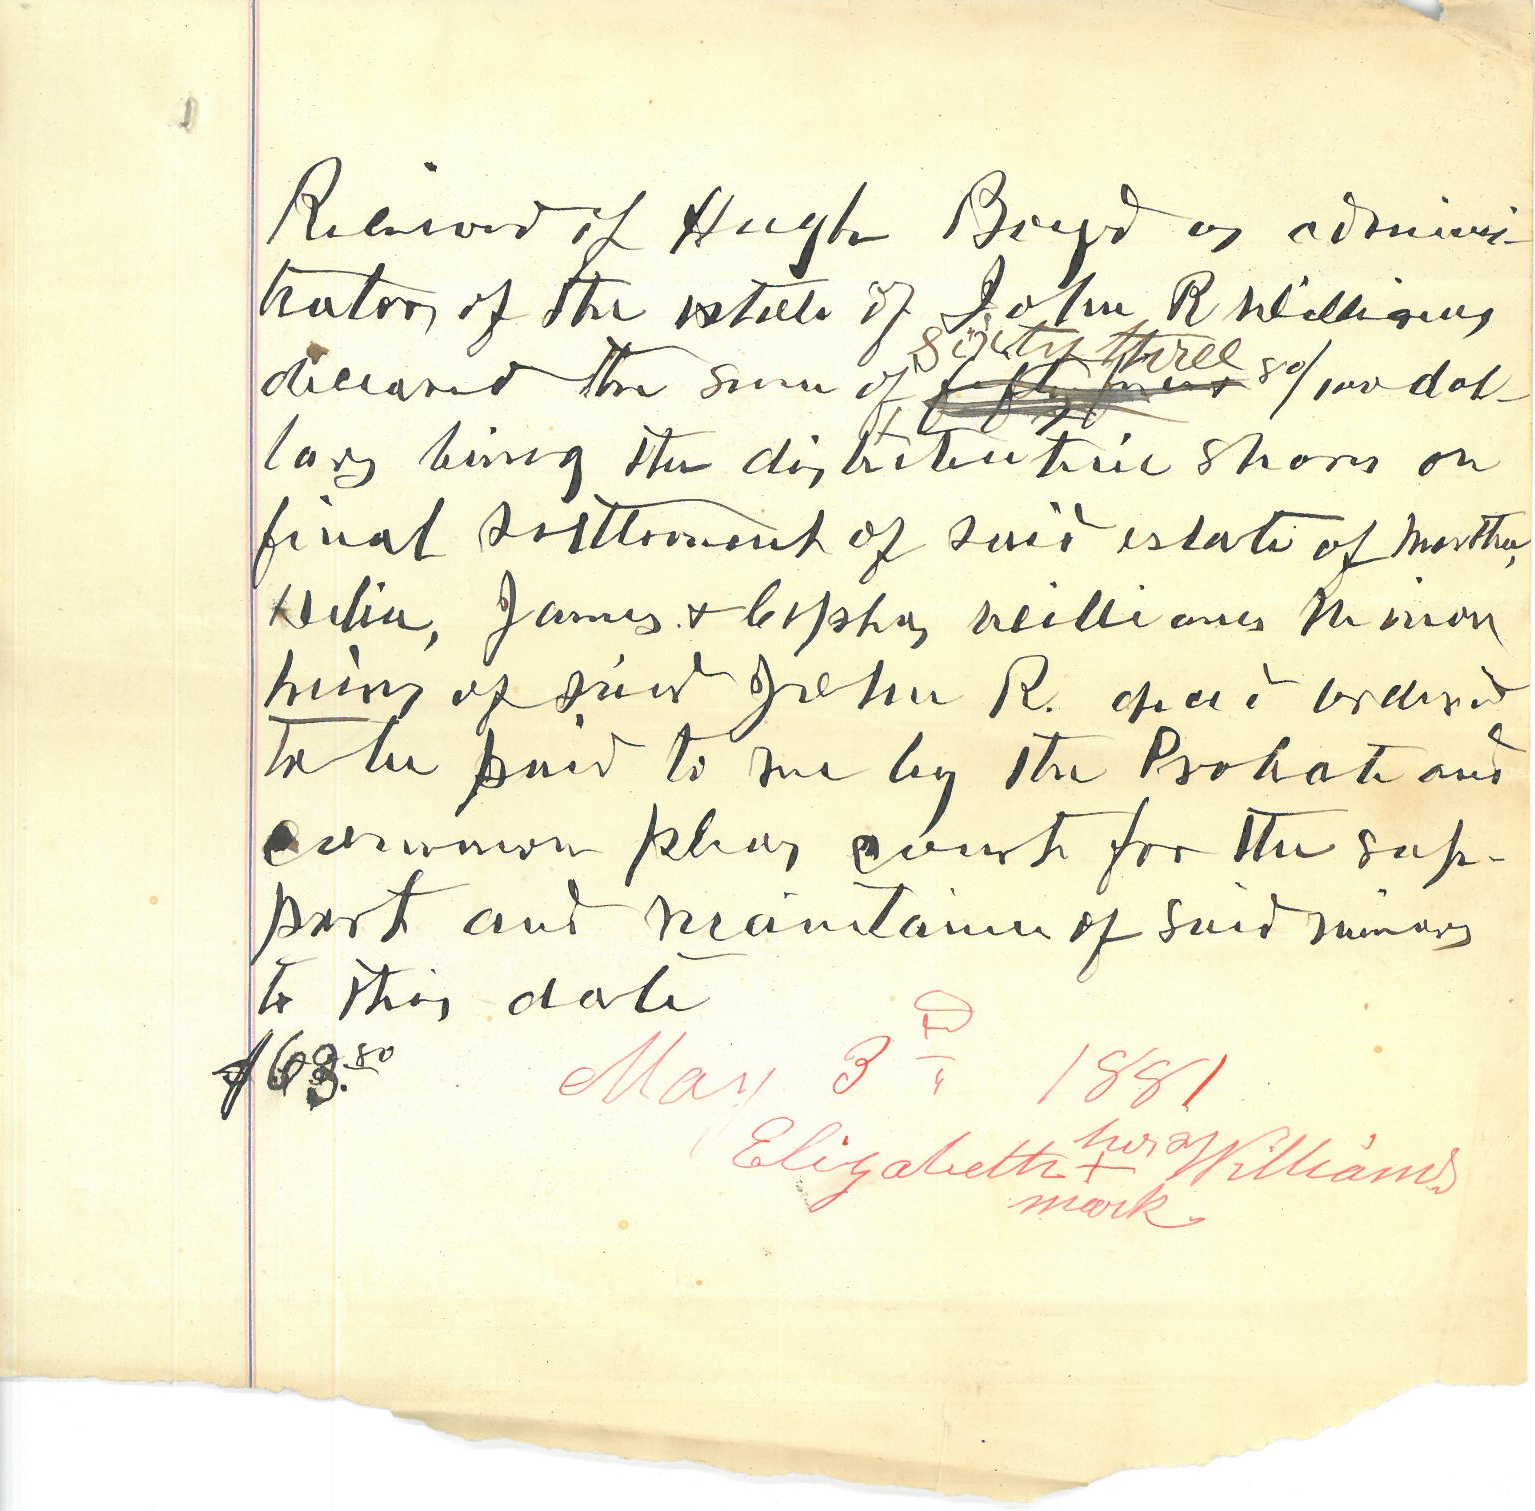 Received of Hugh Boyd as adminis-
trator of the estate of John R Williams
sixty three
deceased the sum of fifty four 80/100 dol-
lars being the distributive shares on
final settlement of said estate of Martha,
Delia, James & Cephas Williams Minor
heirs of said John R. dec'd ordered
to be paid to me by the Probate and
common pleas court for the sup-
port and maintaince of said minors
to this date
$63.80 May 3rd 1881
her
Elizabeth + Williams
mark